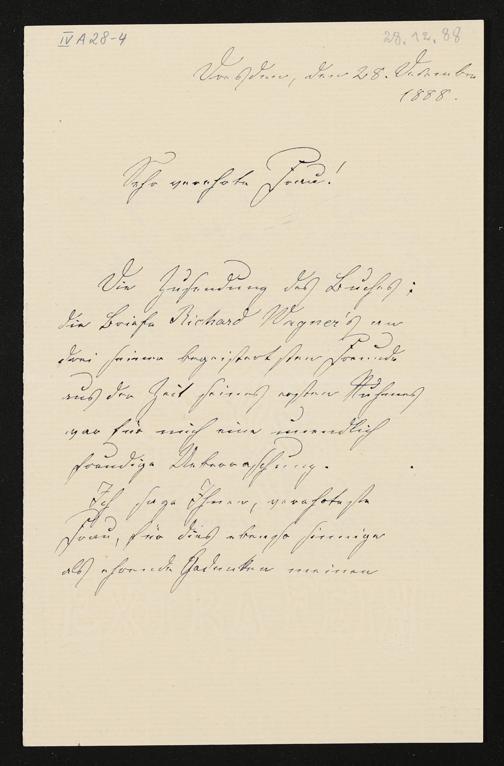 IV A 28-4
28.12.88
Dresden, den 28. Dezember
1888.
Sehr verehrte Frau!
Die Zusendung des Buches:
die Briefe Richard Wagner's an
drei seiner begeistertsten Freunde
aus der Zeit seines ersten Ruhmes
war für mich eine unendlich
freudige Ueberraschung.
Ich sage Ihnen, verehrteste
Frau, für dies ebenso sinnige
als ehrende Gedenken meinen